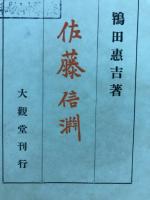 鴨田惠吉著
佐藤信淵
大觀堂刊行